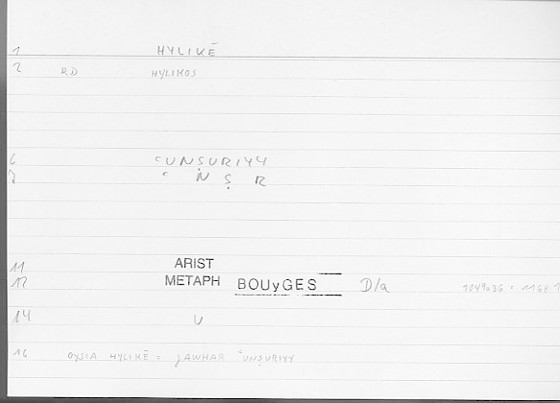 1 HYLIKĒ
2 RD HYLIKOS
6 ʿUNṢURIYY
7 ʿ N Ṣ R
11 ARIST
12 METAPH BOUyGES D/a
14 U
16 OYSIA HYLIKĒ = JAWHAR ʿUNṢURIYY